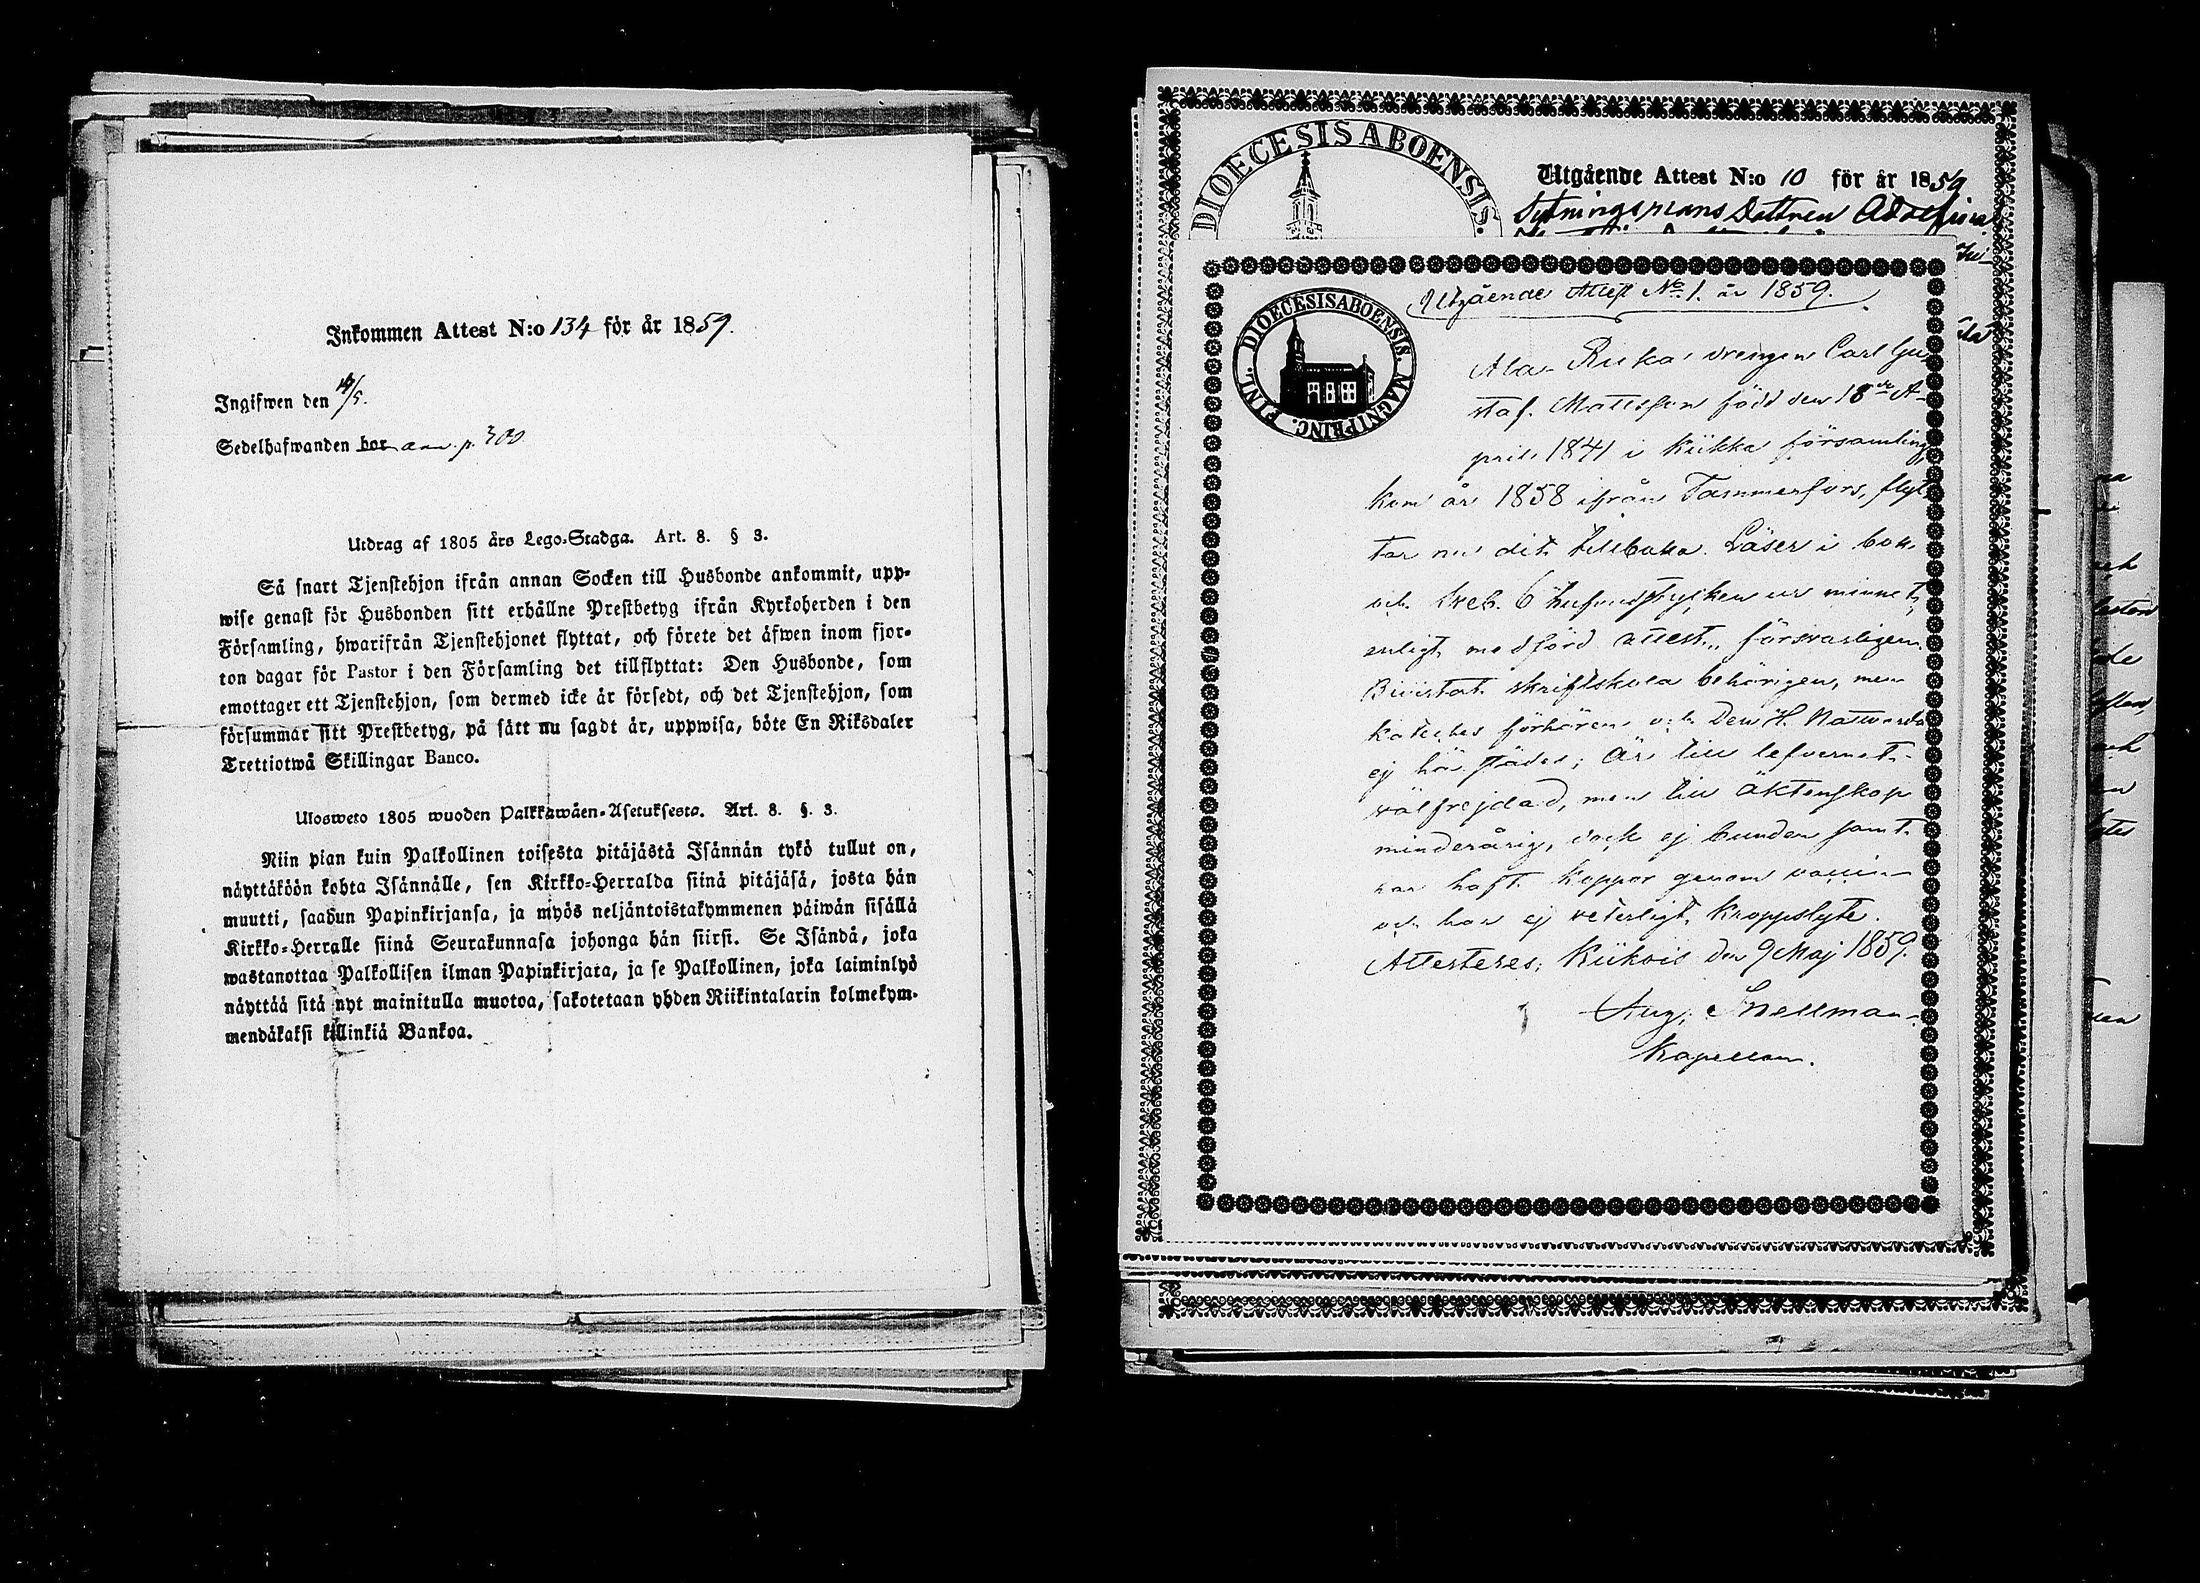 Inkommen Attest N:o 134 för år 1859.
Ingifwen den 14/5.
Sedelhafwanden bor ann. p. 300
Utdrag af 1805 års Lego-Stadga. Art. 8. § 3.
Så snart Tjenstehjon ifrån annan Socken till Husbonde ankommit, upp-
wise genast för Husbonden sitt erhållne Prestbetyg ifrån Kyrkoherden i den
Församling, hwarifrån Tjenstehjonet flyttat, och förete det äfwen inom fjor-
ton dagar för Pastor i den Församling det tillflyttat: Den Husbonde, som
emottager ett Tjenstehjon, som dermed icke är försedt, och det Tjenstehjon, som
försummar sitt Prestbetyg, på sätt nu sagdt är, uppwisa, böte En Riksdaler
Trettiotwå Skillingar Banco.
Ulosweto 1805 wuoden Palkkawäen-Asetuksesta. Art. 8. §. 3.
Niin pian kuin Palkollinen toisesta pitäjästä Isännän tykö tullut on,
näyttäköön kohta Isännälle, sen Kirkko-Herralda siinä pitäjäsä, josta hän
muutti, saadun Papinkirjansa, ja myös neljäntoistakymmenen päiwän sisällä
Kirkko-Herralle siinä Seurakunnasa johonga hän siirsi. Se Isändä, joka
wastanottaa Palkollisen ilman Papinkirjata, ja se Palkollinen, joka laiminlyö
näyttää sitä nyt mainitulla muotoa, sakotetaan yhden Riikintalarin kolmekym-
mendäkaksi killinkiä Bankoa.
DIOECESIS ABOENSIS.
Utgående Attest N:o 10 för år 1859
Sytningsmans Dottren Adolfina
Utgående Attest No 1. år 1859.
DIOECESIS ABOENSIS MAGNI PRINC. FINL.
Ala-Ruka drengen Carl Gu-
staf Mattsson född den 18de A-
pril 1841 i Kiikka församling,
kom år 1858 ifrån Tammerfors, flyt-
tar nu dit tillbaka. Läser i bok
och 6 hufvudstycken ur minnet,
enligt medförd attest, försvarligen.
Bivistat skriftskola behörigen, men
förhören och Den H. Nattvard
ej här städes; är till lefvernet
välfrejdad, men till äktenskap
minderårig, dock ej bunden samt
har haft koppor genom vaccin
och har ej veterligt kroppslyte.
Attesteres; Kiikois den 9 Maj 1859.
Aug. Snellman.
Kapellan.